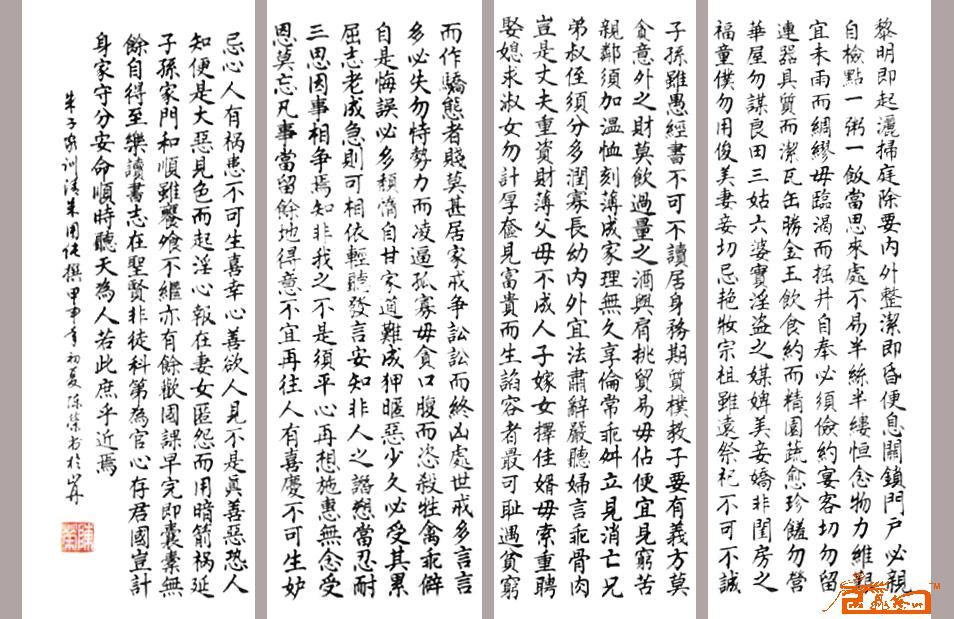 黎明即起灑掃庭除要內外整潔即昏便息關鎖門戶必親
自檢點一粥一飯當思來處不易半絲半縷恒念物力維艱
宜未雨而綢繆毋臨渴而掘井自奉必須儉約宴客切勿留
連器具質而潔瓦缶勝金玉飲食約而精園蔬愈珍饈勿營
華屋勿謀良田三姑六婆實淫盜之媒婢美妾嬌非閨房之
福童僕勿用俊美妻妾切忌艷妝宗祖雖遠祭祀不可不誠
子孫雖愚經書不可不讀居身務期質樸教子要有義方莫
貪意外之財莫飲過量之酒與肩挑貿易毋佔便宜見窮苦
親鄰須加溫恤刻薄成家理無久享倫常乖舛立見消亡兄
弟叔侄須分多潤寡長幼內外宜法肅辭嚴聽婦言乖骨肉
豈是丈夫重資財薄父母不成人子嫁女擇佳婿毋索重聘
娶媳求淑女勿計厚奩見富貴而生諂容者最可耻遇貧窮
而作驕態者賤莫甚居家戒爭訟訟而終凶處世戒多言言
多必失勿恃勢力而凌逼孤寡毋貪口腹而恣殺牲禽乖僻
自是悔誤必多頹惰自甘家道難成狎暱惡少久必受其累
屈志老成急則可相依輕聽發言安知非人之譖愬當忍耐
三思因事相爭焉知非我之不是須平心再想施惠無念受
恩莫忘凡事當留餘地得意不宜再往人有喜慶不可生妒
忌心人有禍患不可生喜幸心善欲人見不是真善惡恐人
知便是大惡見色而起淫心報在妻女匿怨而用暗箭禍延
子孫家門和順雖饔飧不繼亦有餘歡國課早完即囊橐無
餘自得至樂讀書志在聖賢非徒科第為官心存君國豈計
身家守分安命順時聽天為人若此庶乎近焉
朱子家訓清朱用純撰甲申年初夏陳榮書於
陳榮